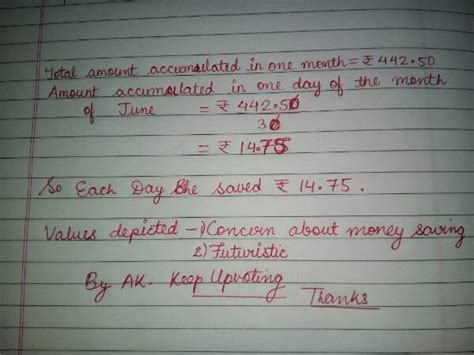 Total amount accumulated in one month = ₹ 442.50
Amount accumulated in one day of the month
of June = ₹ 442.50
30
= ₹ 14.75
So Each Day She saved ₹ 14.75.
Values depicted → 1) Concern about money saving
2) Futuristic
By AK. Keep Upvoting
Thanks